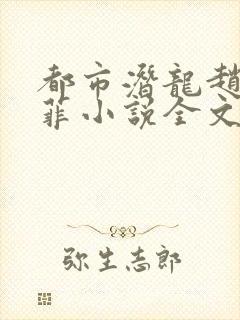 都市潛龍趙
菲小說全文
弥生志郎